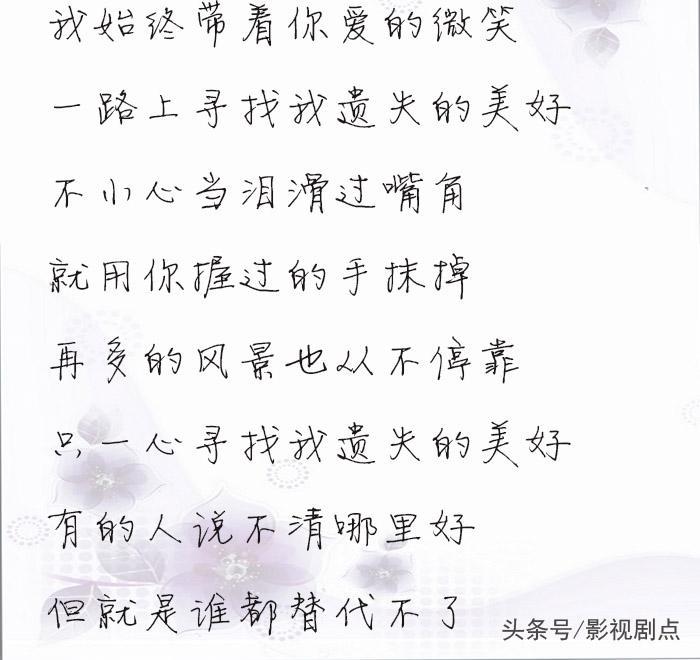 我始终带着你爱的微笑
一路上寻找我遗失的美好
不小心当泪滑过嘴角
就用你握过的手抹掉
再多的风景也从不停靠
只一心寻找我遗失的美好
有的人说不清哪里好
但就是谁都替代不了
头条号/影视剧点